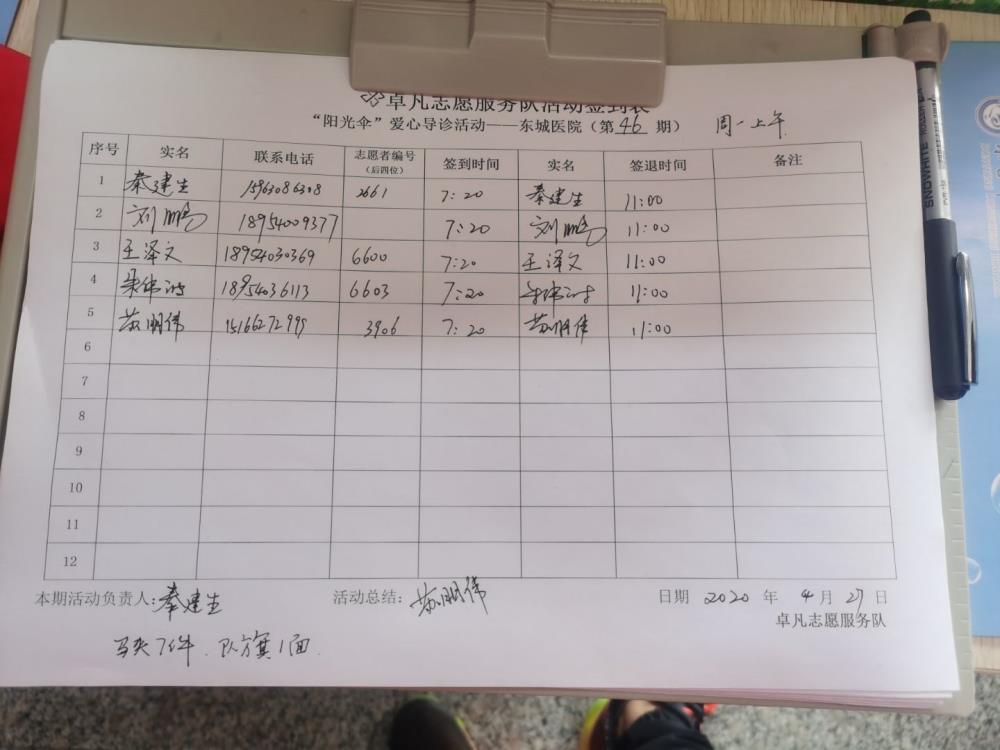 卓凡志愿服务队活动签到表
“阳光伞”爱心导诊活动——东城医院（第46期） 周一上午
序号 实名 联系电话 志愿者编号（后四位） 签到时间 实名 签退时间 备注
1 秦建生 15963086308 2661 7:20 秦建生 11:00
2 刘鹏 18954009377 7:20 刘鹏 11:00
3 王泽文 18954030369 6600 7:20 王泽文 11:00
4 18954036113 6603 7:20 11:00
5 苏明伟 15166272999 3906 7:20 苏明伟 11:00
6
7
8
9
10
11
12
本期活动负责人：秦建生 活动总结：苏明伟 日期 2020 年 4 月 27 日
卓凡志愿服务队
马夹7件．队旗1面．
SNOWHITE